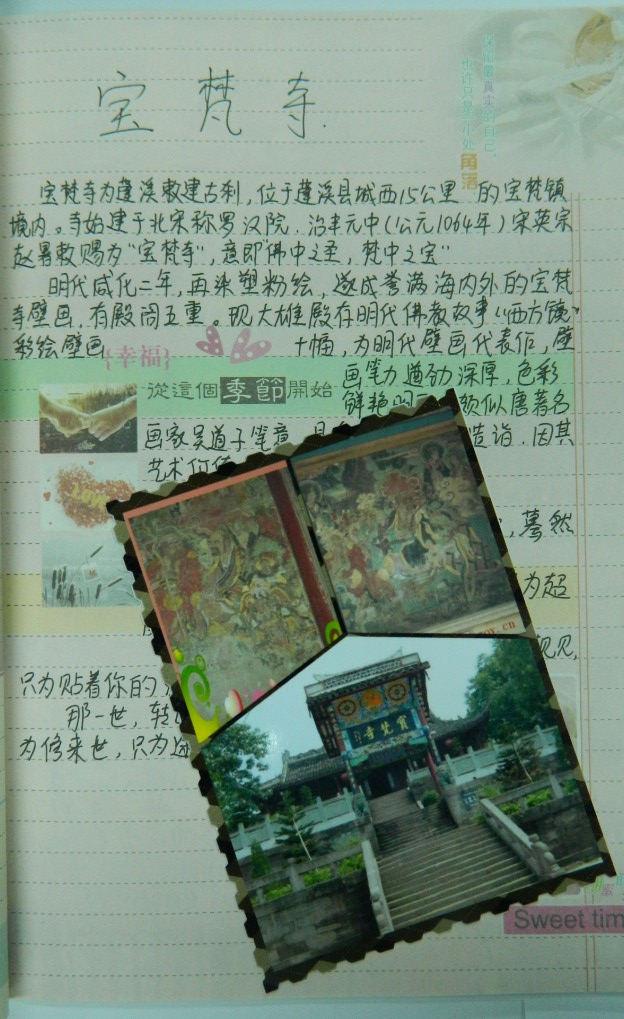 宝梵寺
保留最真实的自己,
也许只是一个处
角落
宝梵寺为蓬溪敕建古刹,位于蓬溪县城西15公里 的宝梵镇
境内。寺始建于北宋称罗汉院.治平元中(公元1064年)宋英宗
赵曙敕赐为“宝梵寺”,意即“佛中之圣,梵中之宝”
明代成化二年,再柒塑粉绘,遂成誉满海内外的宝梵
寺壁画,有殿阁五重。现大雄殿存明代佛教故事“西方境”
彩绘壁画 十幅,为明代壁画代表作,壁
{幸福}
画笔力遒劲深厚,色彩
從這個季節開始
鲜艳明 颇似唐著名
画家吴道子笔意 造诣.因其
艺术价
LOVE
,蓦然
为超
见,
只为贴着你的
那一世,转
为修来世,只为途
寳梵寺
Sweet tim